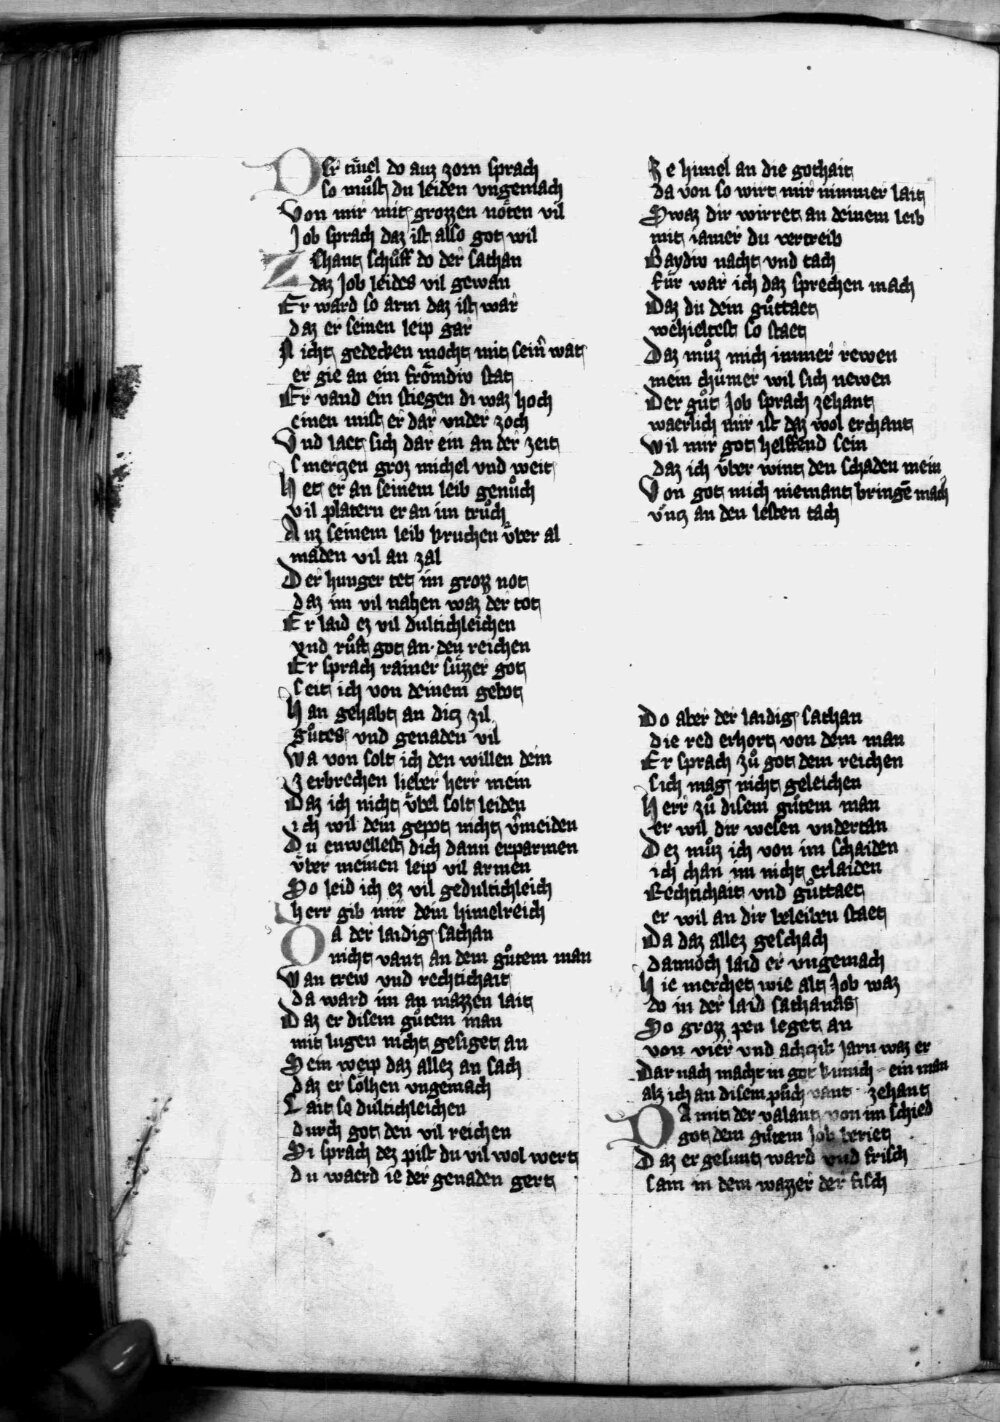 Der tiuͤel do auz zorn sprach
so muͦst du leiden vngemach
Von mir mit grozzen noͤten vil
Job sprach daz ist also got wil
Zehant schuͦff do der sathan
daz Job leides vil gewan
Er ward so arm daz ist war
daz er seinen leip gar
Nicht gedecken mocht mit seinr̄ wat
er gie an ein froͤmdiv stat
Er vand ein stiegen di waz hoch
einen mist er dar vnder zoch
Vnd laet sich dar ein an der zeit
smerczen groz michel vnd weit
Het er an seinem leib genuͦch
vil platern er an im truͦch
Auz seinem leib bruchen vͤber al
maden vil an zal
Der hunger tet im grozz not
daz im vil nahen waz der tot
Er laid ez vil dultichleichen
vnd ruͦft got an den reichen
Er sprach rainer suͤzzer got
seit ich von deinem gebot
Han gehabt an ditz zil
guͦtes vnd genaden vil
Wa von solt ich den willen dein
zerbrechen lieber herr mein
Daz ich nicht vͤbel solt leiden
ich wil dein gepot nicht v̄meiden
Du enwellest dich dann erparmen
vͤber meinen leip vil armen
So leid ich ez vil gedultichleich
herr gib mir dein himelreich
Da der laidig sathan
nicht vant an dem guͦtem man
Wan trew vnd rechtichait
da ward im an mazzen lait
Daz er disem guͦtem man
mit lugen nicht gesiget an
Sein weip daz allez an sach
daz er solhen vngemach
Lait so dultichleichen
durch got den vil reichen
Si sprach dez pist du vil wol wert
du waerd ie der genaden gert
Ze himel an die gothait
da von so wirt mir nimmer lait
Swaz dir wirret an deinem leib
mit iamer du vertreib
Baydiv nacht vnd tach
fuͤr war ich daz sprechen mach
Daz du dein guͦttaet
wehieltest so staet
Daz muͦz mich immer rewen
mein chuͤmer wil sich newen
Der guͦt Job sprach zehant
waerlich mir ist daz wol erchant
Wil mir got helffend sein
daz ich vͤber wint den schaden mein
Von got mich niemant bringē mach
vntz an den lesten tach
Do aber der laidig sathan
die red erhort von dem man
Er sprach zuͦ got dem reichen
sich mag nicht geleichen
Herr zuͦ disem guͦtem man
er wil dir wesen vndertan
Dez muͦz ich von im schaiden
ich chan im nicht erlaiden
Rechtichait vnd guͦttaet
er wil an dir beleiben staet
Da daz allez geschach
dannoch laid er vngemach
Hie merchet wie alt Job waz
do in der laid sathanas
So grozz pen leget an
von vier vnd achczik Jarn waz er
Dar nach macht in got kunich ein man
alz ich an disem puͦch vant zehant
Da mit der valant von im schied
got dem guͦtem Job beriet
Daz er gesunt ward vnd frisch
sam in dem wazzer der fisch